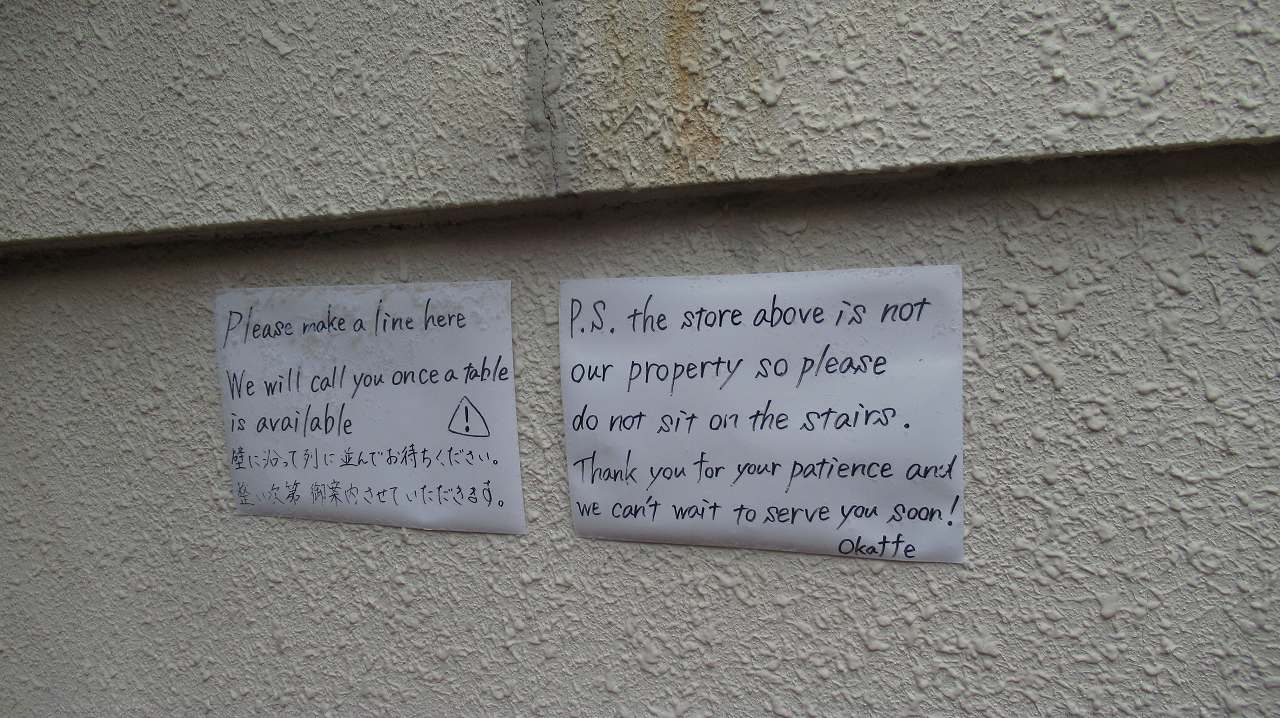 Please make a line here
We will call you once a table
is available
壁に沿って列に並んでお待ちください。
整い次第 御案内させていただきます。
P.S. the store above is not
our property so please
do not sit on the stairs.
Thank you for your patience and
we can't wait to serve you soon!
Okaffe